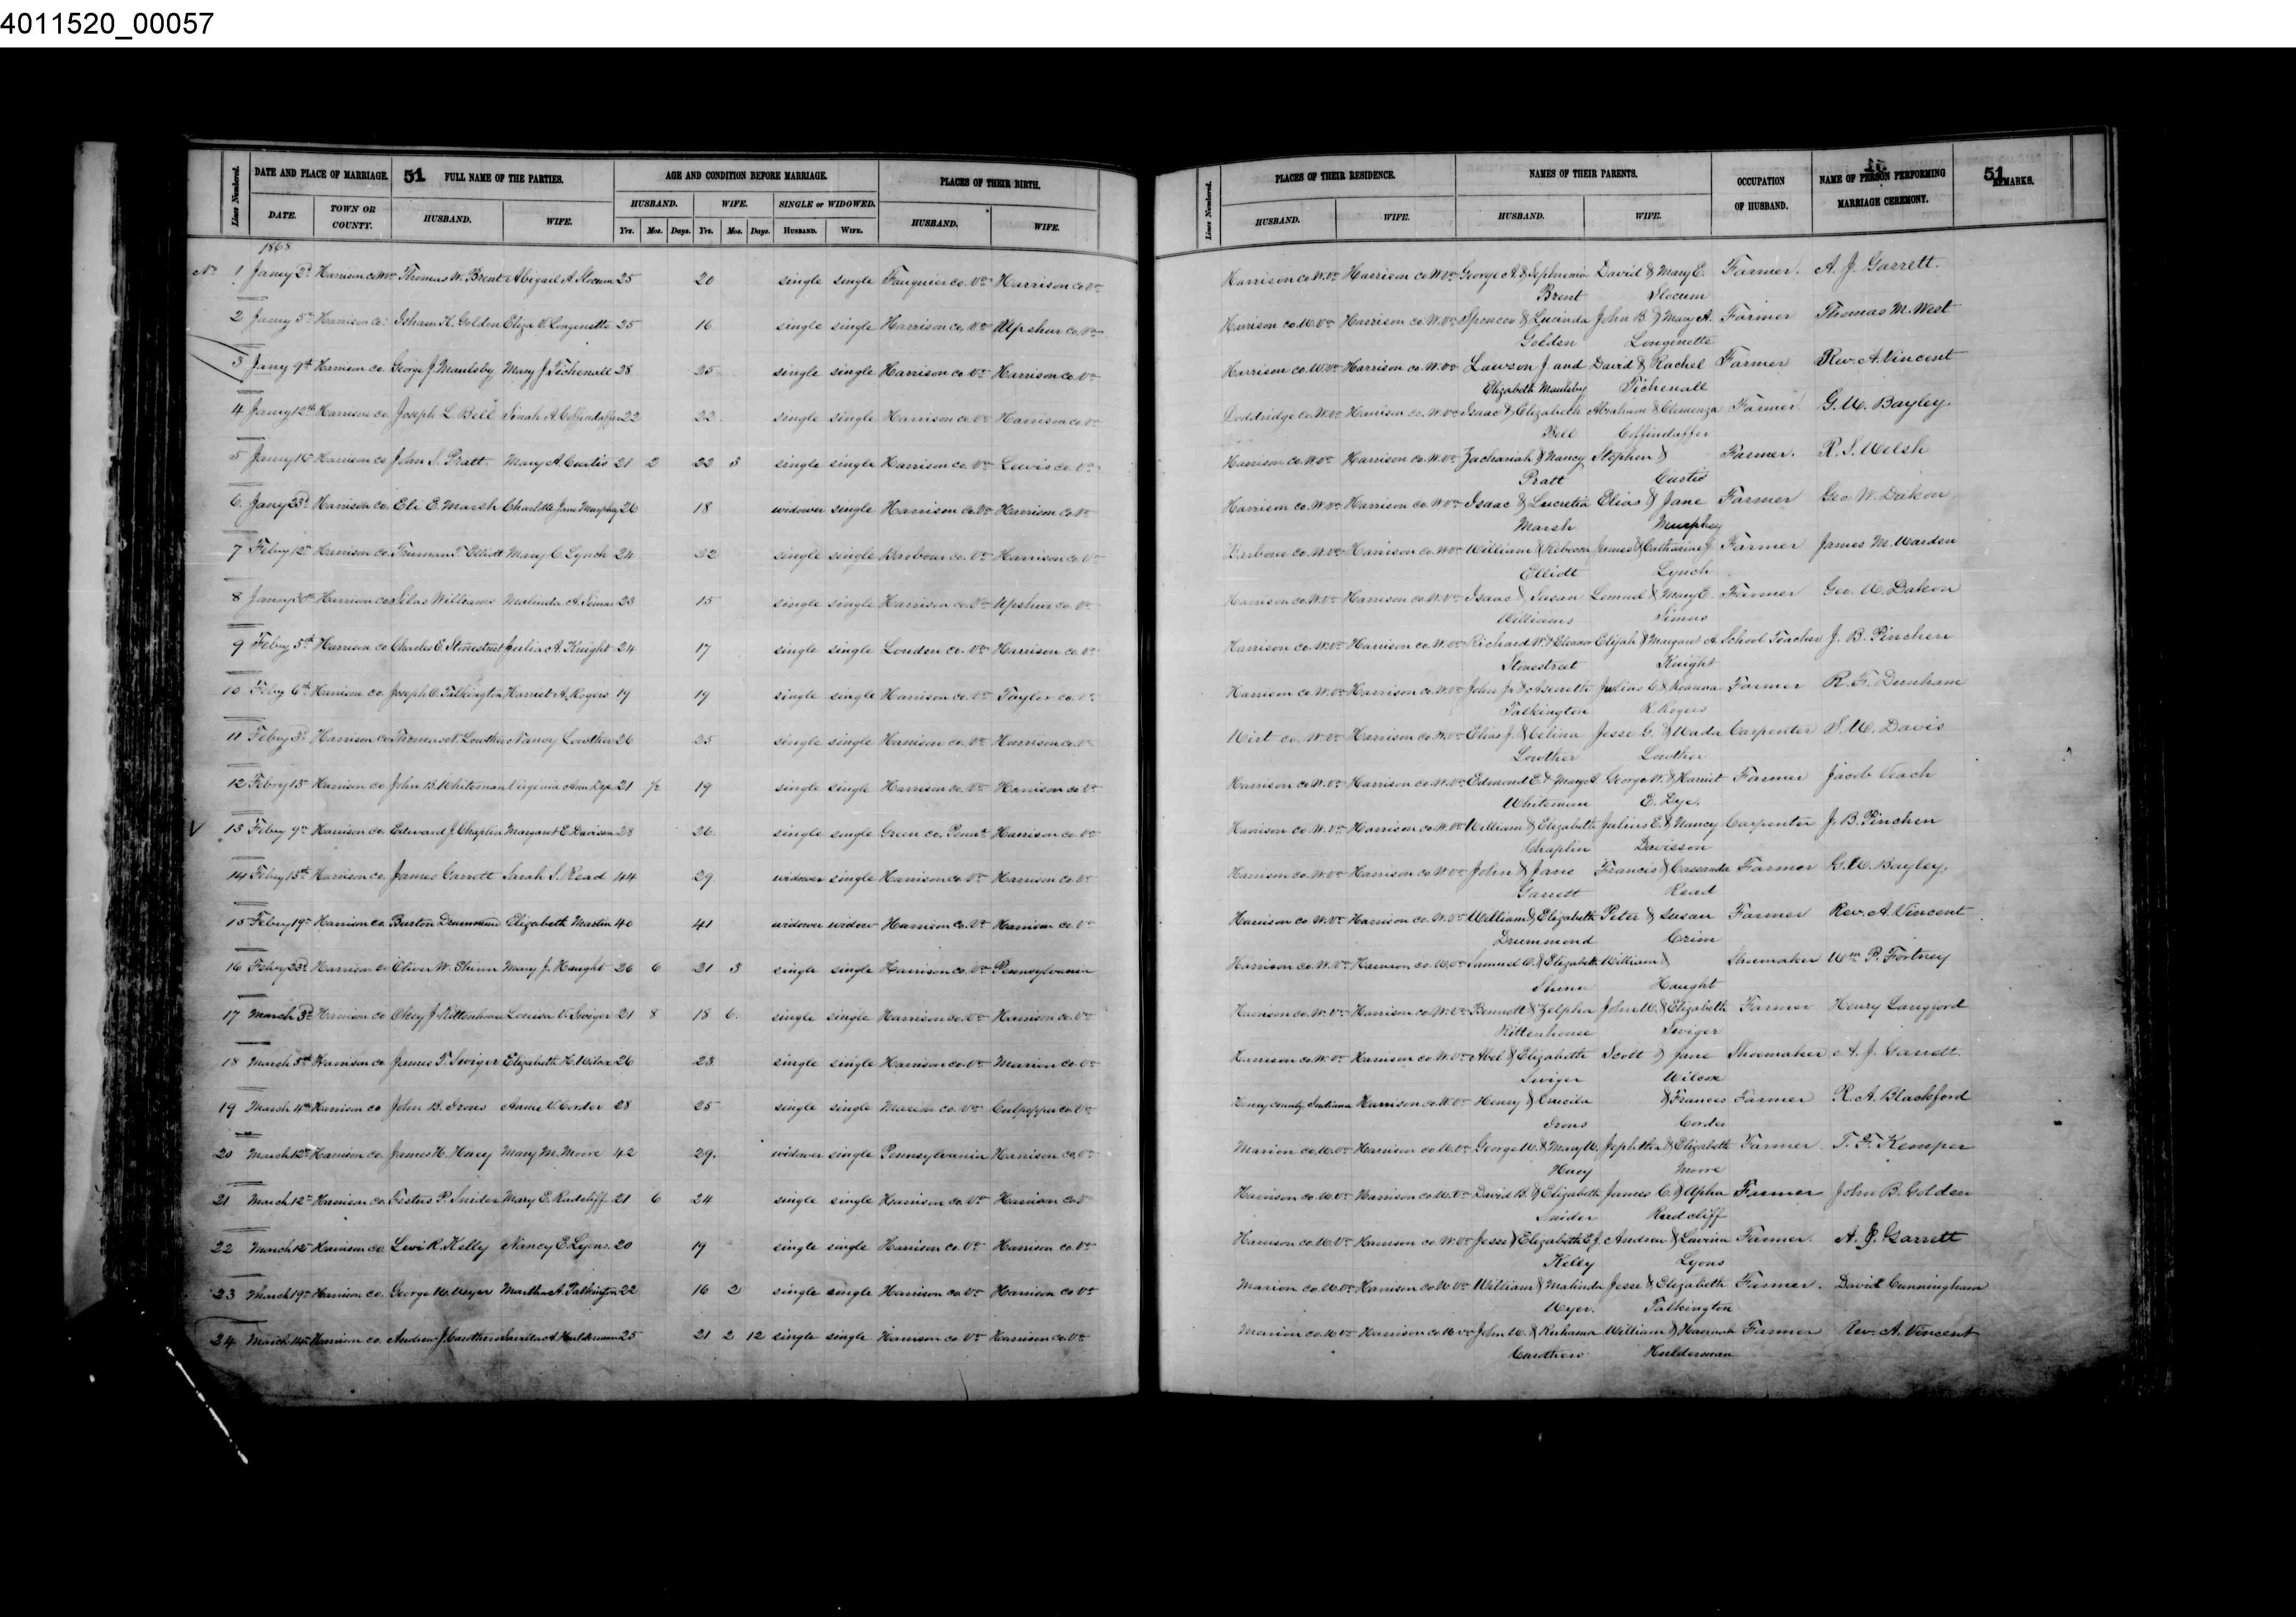 4011520_00057
Lines Numbered. DATE AND PLACE OF MARRIAGE. 51 FULL NAME OF THE PARTIES. AGE AND CONDITION BEFORE MARRIAGE. PLACES OF THEIR BIRTH.
HUSBAND. WIFE. SINGLE or WIDOWED.
DATE. TOWN OR COUNTY. HUSBAND. WIFE. Yrs. Mos. Days. Yrs. Mos. Days. HUSBAND. WIFE. HUSBAND. WIFE.
1868
No 1 Jany 2d Harrison co W Va Thomas W. Brent Abigail A. Slocum 25 20 single single Fauquier co. Va Harrison co Va
2 Jany 5th Harrison Co. Isham H. Golden Eliza V. Longenette 25 16 single single Harrison co. Va Upshur co. Va
3 Jany 9th Harrison co. George J. Maulsby Mary J. Tichenall 28 25 single single Harrison co Va Harrison co. Va
4 Jany 12th Harrison co Joseph L. Bell A. Coffindaffer 22 22 single single Harrison co. Va Harrison co Va
5 Jany 16 Harrison co John S. Pratt. Mary A. Curtis 21 2 22 3 single single Harrison co. Va Lewis co. Va
6 Jany 23d Harrison co. Eli E. Marsh Charlotte Jane Murphy 26 18 widower single Harrison Co. Va Harrison co Va
7 Feby 12th Harrison co T. Elliott Mary C. Lynch 24 22 single single Barbour co. Va Harrison co. Va
8 Jany 30th Harrison co Silas Williams Malinda A. Simms 23 15 single single Harrison co. Va Upshur co. Va
9 Feby 5th Harrison co Charles E. Stonestreet Julia A. Knight 24 17 single single Louden co. Va Harrison co. Va
10 Feby 6th Harrison co. Joseph O. Talkington Harriet A. Rogers 19 19 single single Harrison co. Va Taylor co. Va
11 Feby 3d Harrison co N. Lowther Nancy Lowther 26 25 single single Harrison co. Va Harrison co. Va
12 Feby 13 Harrison co John B. Whiteman Virginia Ann Dye 21 19 single single Harrison co. Va Harrison co Va
13 Feby 9th Harrison co. Edward J. Chaplin Margaret E. Davisson 28 26 single single Green co. Penna Harrison co. Va
14 Feby 13th Harrison co. James Garrett Sarah S. Read 44 29 widower single Harrison co. Va Harrison co. Va
15 Feby 19th Harrison co. Burton Drummond Elizabeth Martin 40 41 widower widow Harrison Co. Va Harrison co. Va
16 Feby 23d Harrison co W. Shinn Mary J. Haught 26 6 21 3 single single Harrison co. Va Pennsylvania
17 March 3d Harrison co Okey J. Rittenhouse Louisa V. Swiger 21 8 18 6 single single Harrison co. Va Harrison co. Va
18 March 5th Harrison co James T. Swiger Elizabeth H. Wilcox 26 23 single single Harrison co. Va Marion co. Va
19 March 4th Harrison co John B. Irons Annie V. Corder 28 25 single single Marion co. Va Culpepper co. Va
20 March 12th Harrison co. James H. Huey Mary M. Moore 42 29 widower single Pennsylvania Harrison co. Va
21 March 12th Harrison co Festus P. Snider Mary E. Radcliff 21 6 24 single single Harrison co. Va Harrison co Va
22 March 12th Harrison co. Levi R. Kelly Nancy E. Lyons 20 19 single single Harrison co. Va Harrison co. Va
23 March 19th Harrison co. George W. Myer Martha A. Talkington 22 16 2 single single Harrison co Va Harrison co. Va
24 March 14th Harrison co. Andrew J. Carothers A. Hulderman 25 21 2 12 single single Harrison co. Va Harrison co. Va
Lines Numbered. PLACES OF THEIR RESIDENCE. NAMES OF THEIR PARENTS. OCCUPATION OF HUSBAND. NAME OF PERSON PERFORMING MARRIAGE CEREMONY. 51 REMARKS.
HUSBAND. WIFE. HUSBAND. WIFE.
Harrison co. W. Va Harrison co W. Va George A. & Sephronia David & Mary E. Farmer. A. J. Garrett.
Brent Slocum
Harrison co. W. Va Harrison co. W. Va Spencer & Lucinda John B. & Mary A. Farmer Thomas M. West
Golden Longinette
Harrison co. W. Va Harrison co. W. Va Lawson J. and David & Rachel Farmer Rev. A. Vincent
Elizabeth Maulsby Tichenall
Doddridge co. W. Va Harrison co. W. Va Isaac & Elizabeth Abraham & Clemenza Farmer G. W. Bayley.
Bell Coffindaffer
Harrison co. W. Va Harrison co. W. Va Zachariah & Nancy Stephen & Farmer. R. S. Welsh
Pratt Curtis
Harrison co. W. Va Harrison co. W. Va Isaac & Lucretia Elias & Jane Farmer Geo W. Dakon
Marsh Murphy
Barbour co. W. Va Harrison co. W. Va William & Rebecca James & Catharine J. Farmer James M. Warden
Elliott Lynch
Harrison co. W. Va Harrison co. W. Va Isaac & Susan Lemuel & Mary E. Farmer Geo. W. Dakon
Williams Simms
Harrison co. W. Va Harrison co. W. Va Richard W. & Eleanor Elijah & Margaret A. School Teacher J. B. Pinchen
Stonestreet Knight
Harrison co. W. Va Harrison co. W. Va John J. & Asenetha Julius C. & Roanna Farmer R. F. Dunham
Talkington R. Rogers
Wirt co. W. Va Harrison co. W. Va Elias J. & Celina Jesse G. & Carpenter S. W. Davis
Lowther Lowther
Harrison co. W. Va Harrison co. W. Va Edmond E. & Mary A. George W. & Harriet Farmer Jacob Veach
Whiteman E. Dye.
Harrison co. W. Va Harrison co. W. Va William & Elizabeth Julius E. & Nancy Carpenter J. B. Pinchen
Chaplin Davisson
Harrison co. W. Va Harrison co. W. Va John & Jane Francis & Cassandra Farmer G. W. Bayley.
Garrett Read
Harrison co. W. Va Harrison co. W. Va William & Elizabeth Peter & Susan Farmer Rev. A. Vincent
Drummond Crim
Harrison co. W. Va Harrison co. W. Va Samuel C. & Elizabeth William & Shumaker Wm P. Fortney
Shinn Haught
Harrison co. W. Va Harrison co. W. Va Bennett & Zelpha John W. & Elizabeth Farmer Henry Langford
Rittenhouse Swiger
Harrison co. W. Va Harrison co W. Va Abel & Elizabeth Scott & Jane Shoemaker A. J. Garrett.
Swiger Wilcox
Henry County, Indiana Harrison co. W. Va Henry & & Frances Farmer R. A. Blackford
Irons Corder
Marion co. W. Va Harrison co. W. Va George W. & Mary W. Jephtha & Elizabeth Farmer. T. F. Kemper
Huey Moore
Harrison co. W. Va Harrison co. W. Va David B. & Elizabeth James C. & Farmer John B. Golden
Snider Radcliff
Harrison co. W. Va Harrison co. W. Va Jesse & Elizabeth E. J. Andrew & Lavina Farmer. A. J. Garrett
Kelly Lyons
Marion co. W. Va Harrison co. W. Va William & Malinda Jesse & Elizabeth Farmer. David Cunningham
Myer. Talkington
Marion co. W. Va Harrison co. W. Va John W. & Ruhama William & Hannah Farmer Rev. A. Vincent
Carothers Hulderman